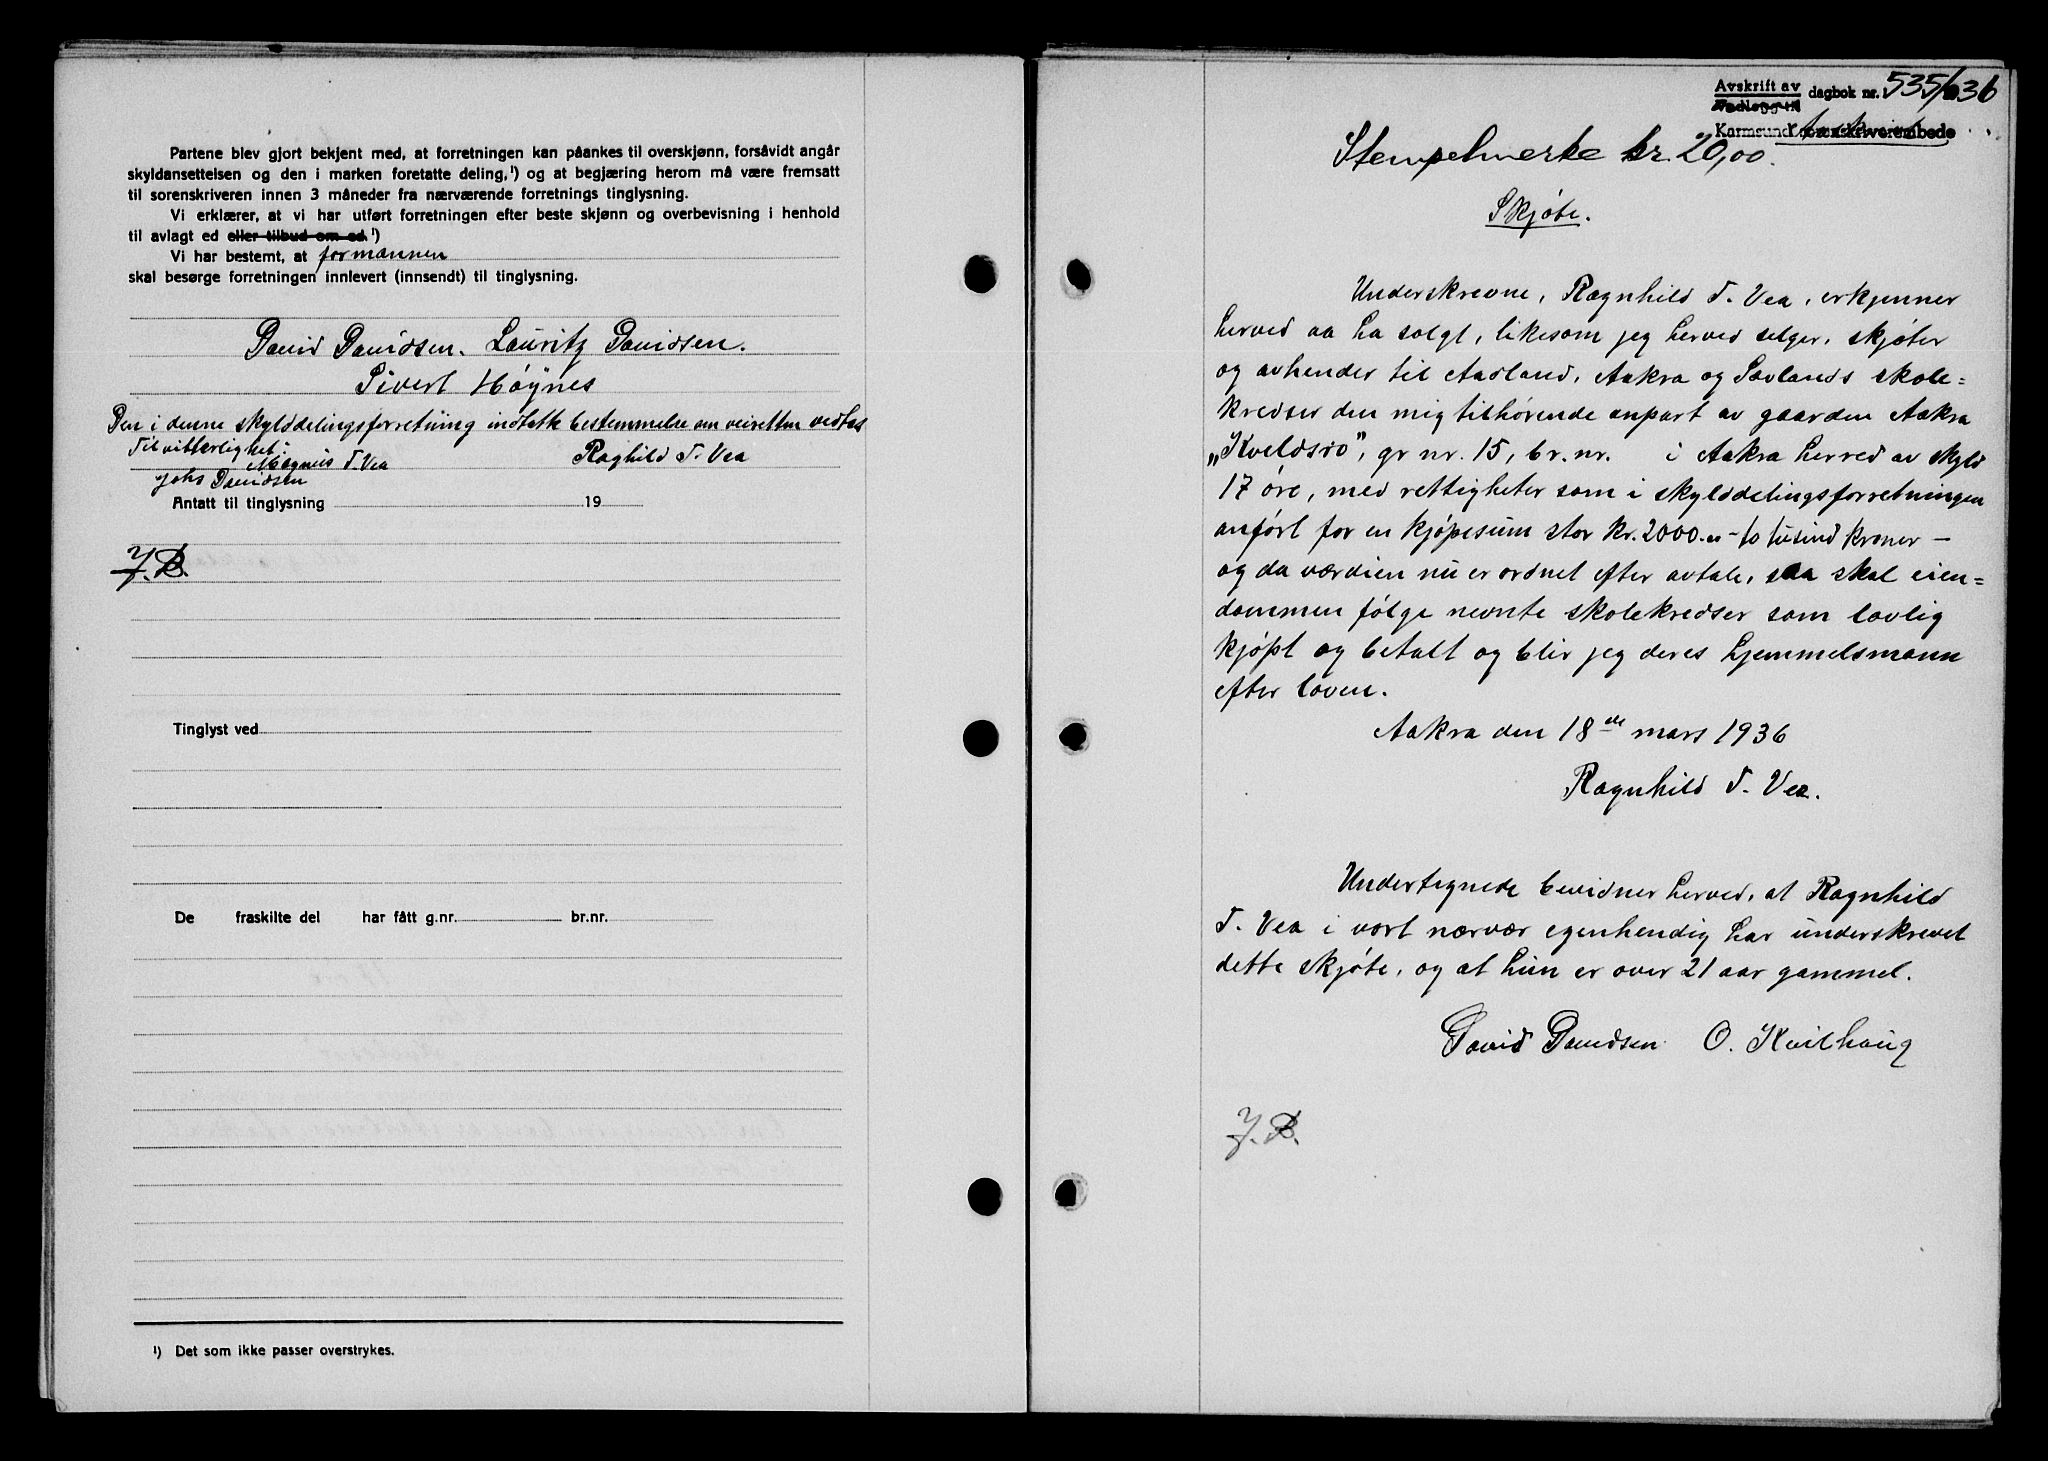 Partene blev gjort bekjent med, at forretningen kan påankes til overskjønn, forsåvidt angår
skyldansettelsen og den i marken foretatte deling,¹) og at begjæring herom må være fremsatt
til sorenskriveren innen 3 måneder fra nærværende forretnings tinglysning.
Vi erklærer, at vi har utført forretningen efter beste skjønn og overbevisning i henhold
til avlagt ed eller tilbud om ed.¹)
Vi har bestemt, at formannen
skal besørge forretningen innlevert (innsendt) til tinglysning.
David Davidsen. Lauritz Davidsen.
Sivert Høynes
Den i denne skylddelingsforretning indtatte bestemmelse om veiretten vedtas
Til vitterlighet:
Magnus T Vea Raghild T. Vea
Johs Davidsen
Antatt til tinglysning 19
J.B.
Tinglyst ved
De fraskilte del har fått g.nr. br.nr.
¹) Det som ikke passer overstrykes.
Avskrift av dagbok nr. 535/1936
Vedlegg til
Karmsund sorenskriverembede
Stempelmerke kr. 20,00.
Skjøte.
Underskrevne, Ragnhild T. Vea, erkjenner
herved aa ha solgt, likesom jeg herved selger, skjøter
og avhender til Aadland, Aakra og Sævlands skole=
kredser den mig tilhørende anpart av gaarden Aakra
„Kveldsro", gr nr. 15, br. nr. i Aakra herred av skyld
17 øre, med rettigheter som i skylddelingsforretningen
anført for en kjøpesum stor kr. 2000.- to tusind kroner -
og da værdien nu er ordnet efter avtale, saa skal eien=
dommen følge nevnte skolekredser som lovlig
kjøpt og betalt og blir jeg deres hjemmelsmann
efter loven.
Aakra den 18de mars 1936
Ragnhild T. Vea.
Undertegnede bevidner herved, at Ragnhild
T. Vea i vort nærvær egenhendig har underskrevet
dette skjøte, og at hun er over 21 aar gammel.
David Davidsen O. Kvilhaug
J.B.